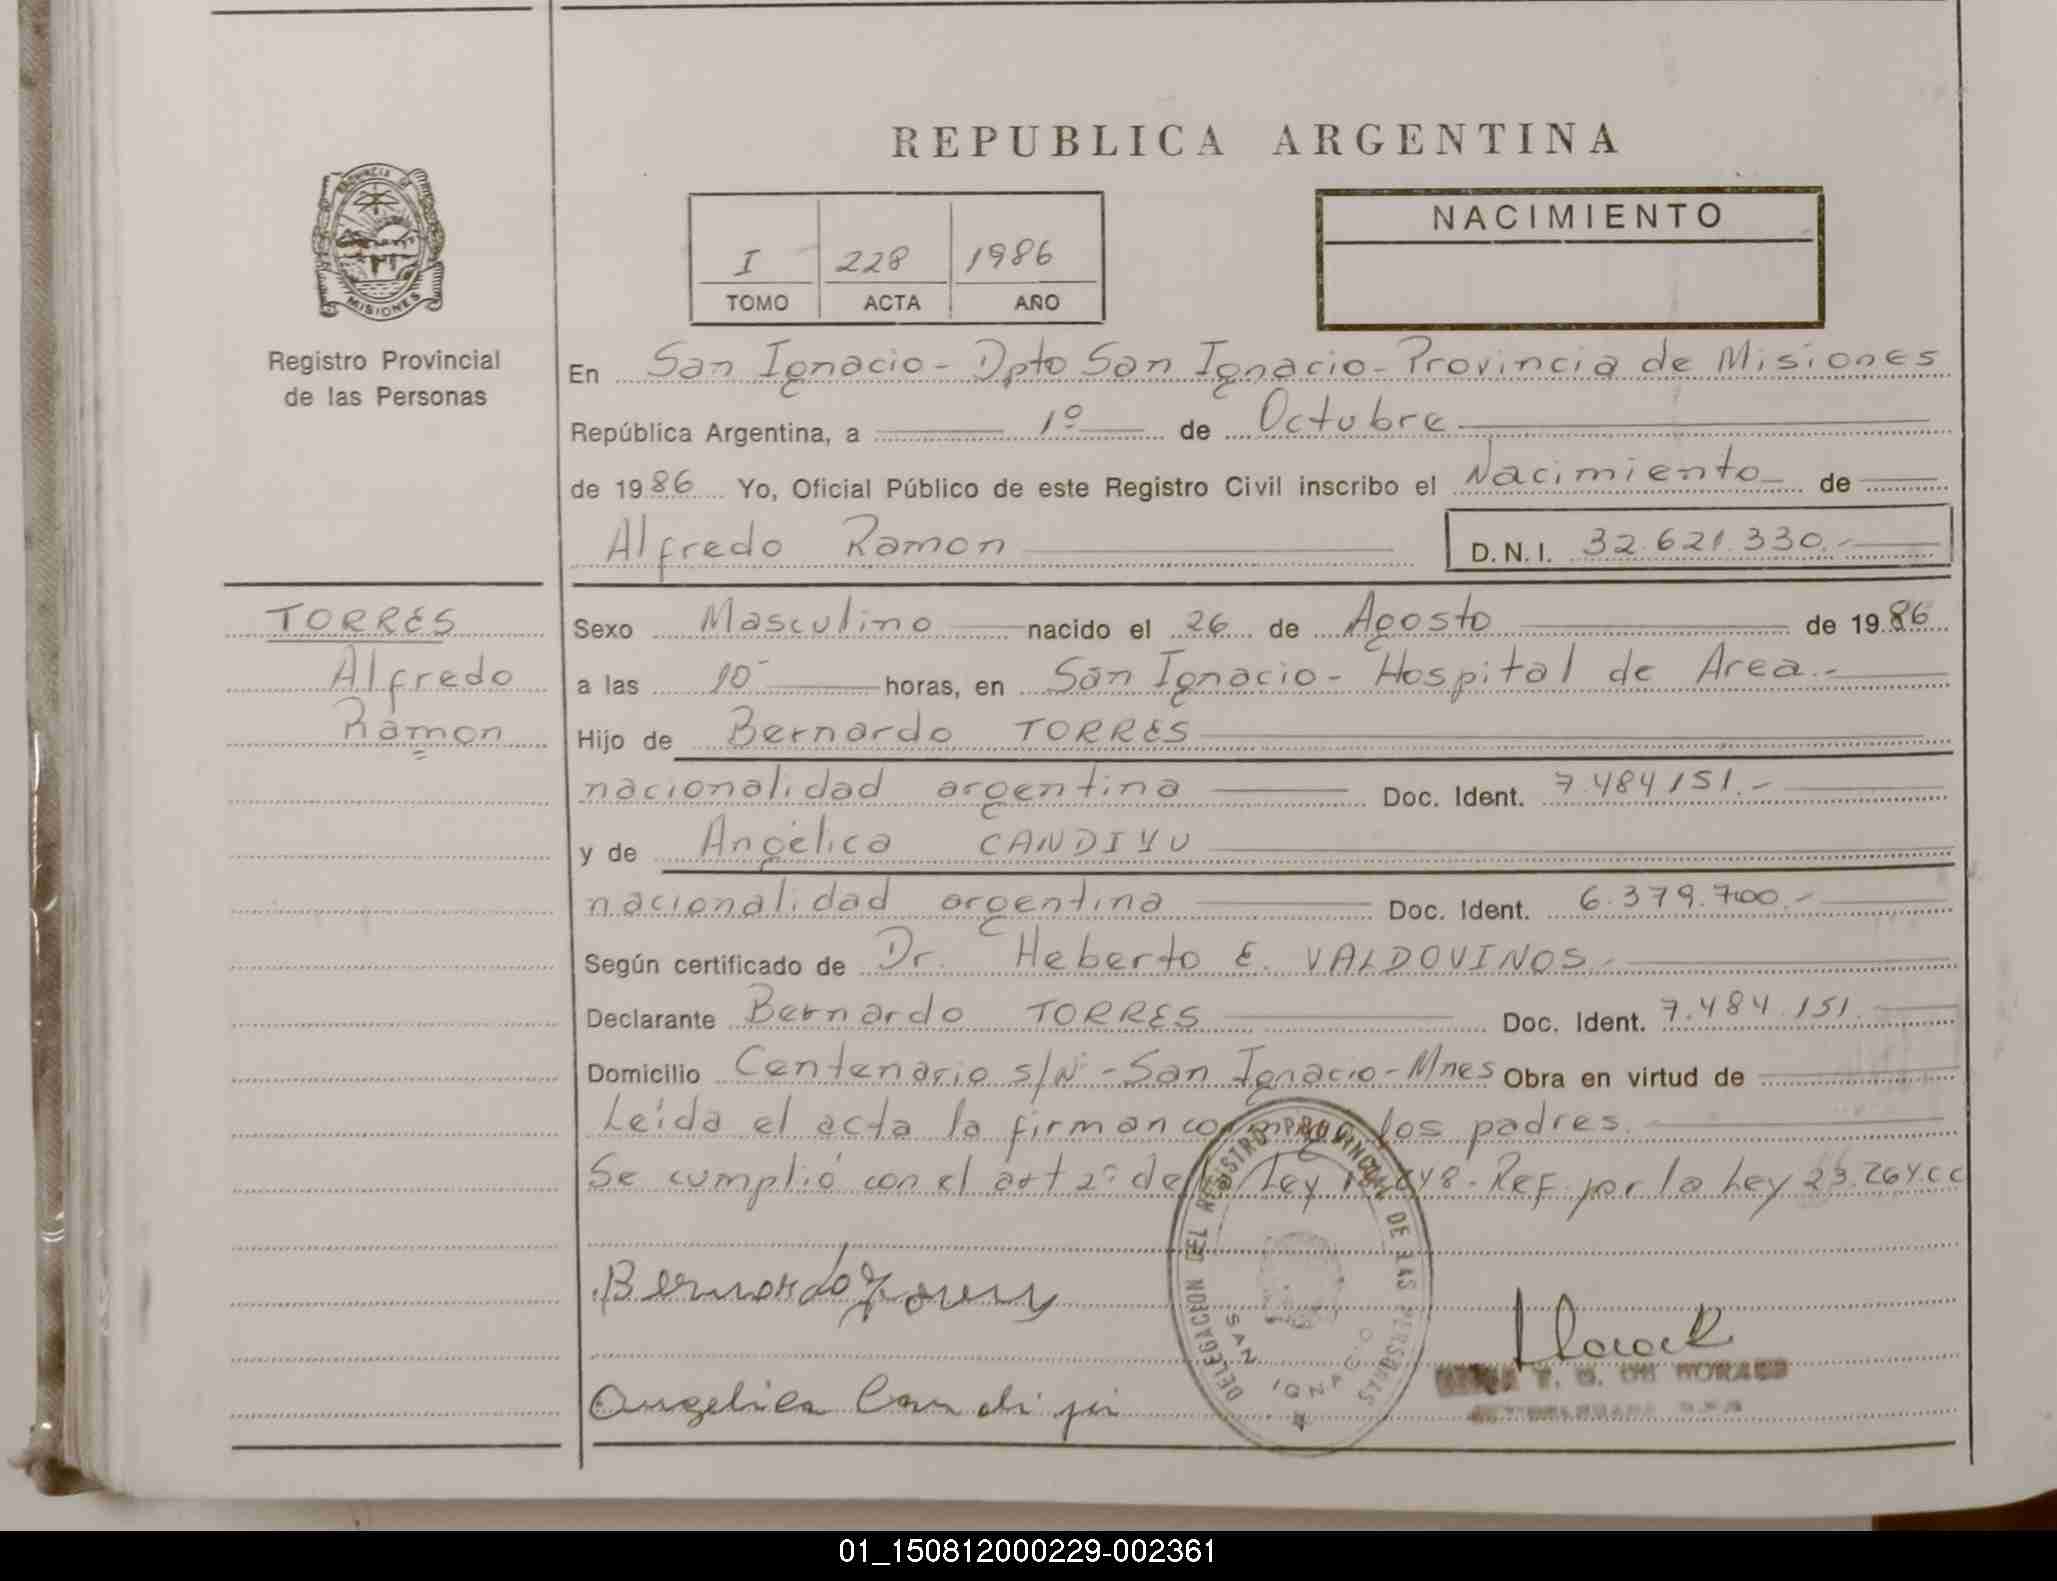 REPUBLICA ARGENTINA
PROVINCIA DE
MISIONES
Registro Provincial
de las Personas
I 228 1986
TOMO ACTA AÑO
NACIMIENTO
En San Ignacio - Dpto San Ignacio - Provincia de Misiones
República Argentina, a 1º de Octubre
de 1986 Yo, Oficial Público de este Registro Civil inscribo el Nacimiento de
Alfredo Ramon D.N.I. 32.621.330.-
TORRES
Alfredo
Ramon
Sexo Masculino nacido el 26 de Agosto de 1986
a las 10 horas, en San Ignacio - Hospital de Area.-
Hijo de Bernardo TORRES
nacionalidad argentina Doc. Ident. 7.484.151.-
y de Angélica CANDIYU
nacionalidad argentina Doc. Ident. 6.379.700.-
Según certificado de Dr. Heberto E. VALDOVINOS.-
Declarante Bernardo TORRES Doc. Ident. 7.484.151.
Domicilio Centenario s/Nº - San Ignacio - Mnes Obra en virtud de
Leída el acta la firman los padres.
Se cumplió con el art 2º de la Ley Ref. por la Ley 23.264.CC
Bernardo Torres
Angelica Candiyú
DELEGACION DEL REGISTRO PROVINCIAL DE LAS PERSONAS
SAN IGNACIO
T. G. DE MORALES
01_150812000229-002361